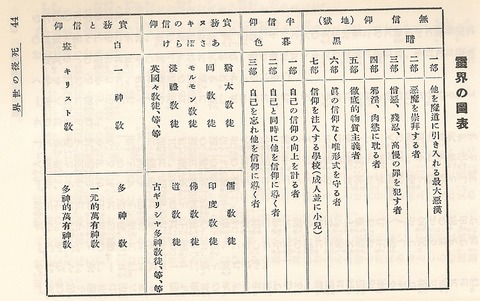 靈界の圖表
無信仰(地獄)
暗黑
一部 他を隧道に引き入れる最大惡漢
二部 惡魔を崇拜する者
三部 憎惡、殘忍、高慢の罪を犯す者
四部 邪淫、肉慾に耽る者
五部 徹底的物質主義者
六部 眞の信仰なく唯形式を守る者
七部 信仰を注入する學校(成人並に小兒)
半信仰
暮色
一部 自己の信仰の向上を計る者
二部 自己と同時に他を信仰に導く者
三部 自己を忘れ他を信仰に導く者
實務ヌキの信仰
あさぼらけ
猶太敎徒 儒敎徒
回敎徒 印度敎徒
モルモン敎徒 佛敎徒
浸禮敎徒 道敎徒
英國々敎徒、等、等 古ギリシヤ多神敎徒、等、等
實務と信仰
白晝
一神敎 多神敎
一元的萬有神敎
キリスト敎 多神的萬有神敎
死後の世界 44